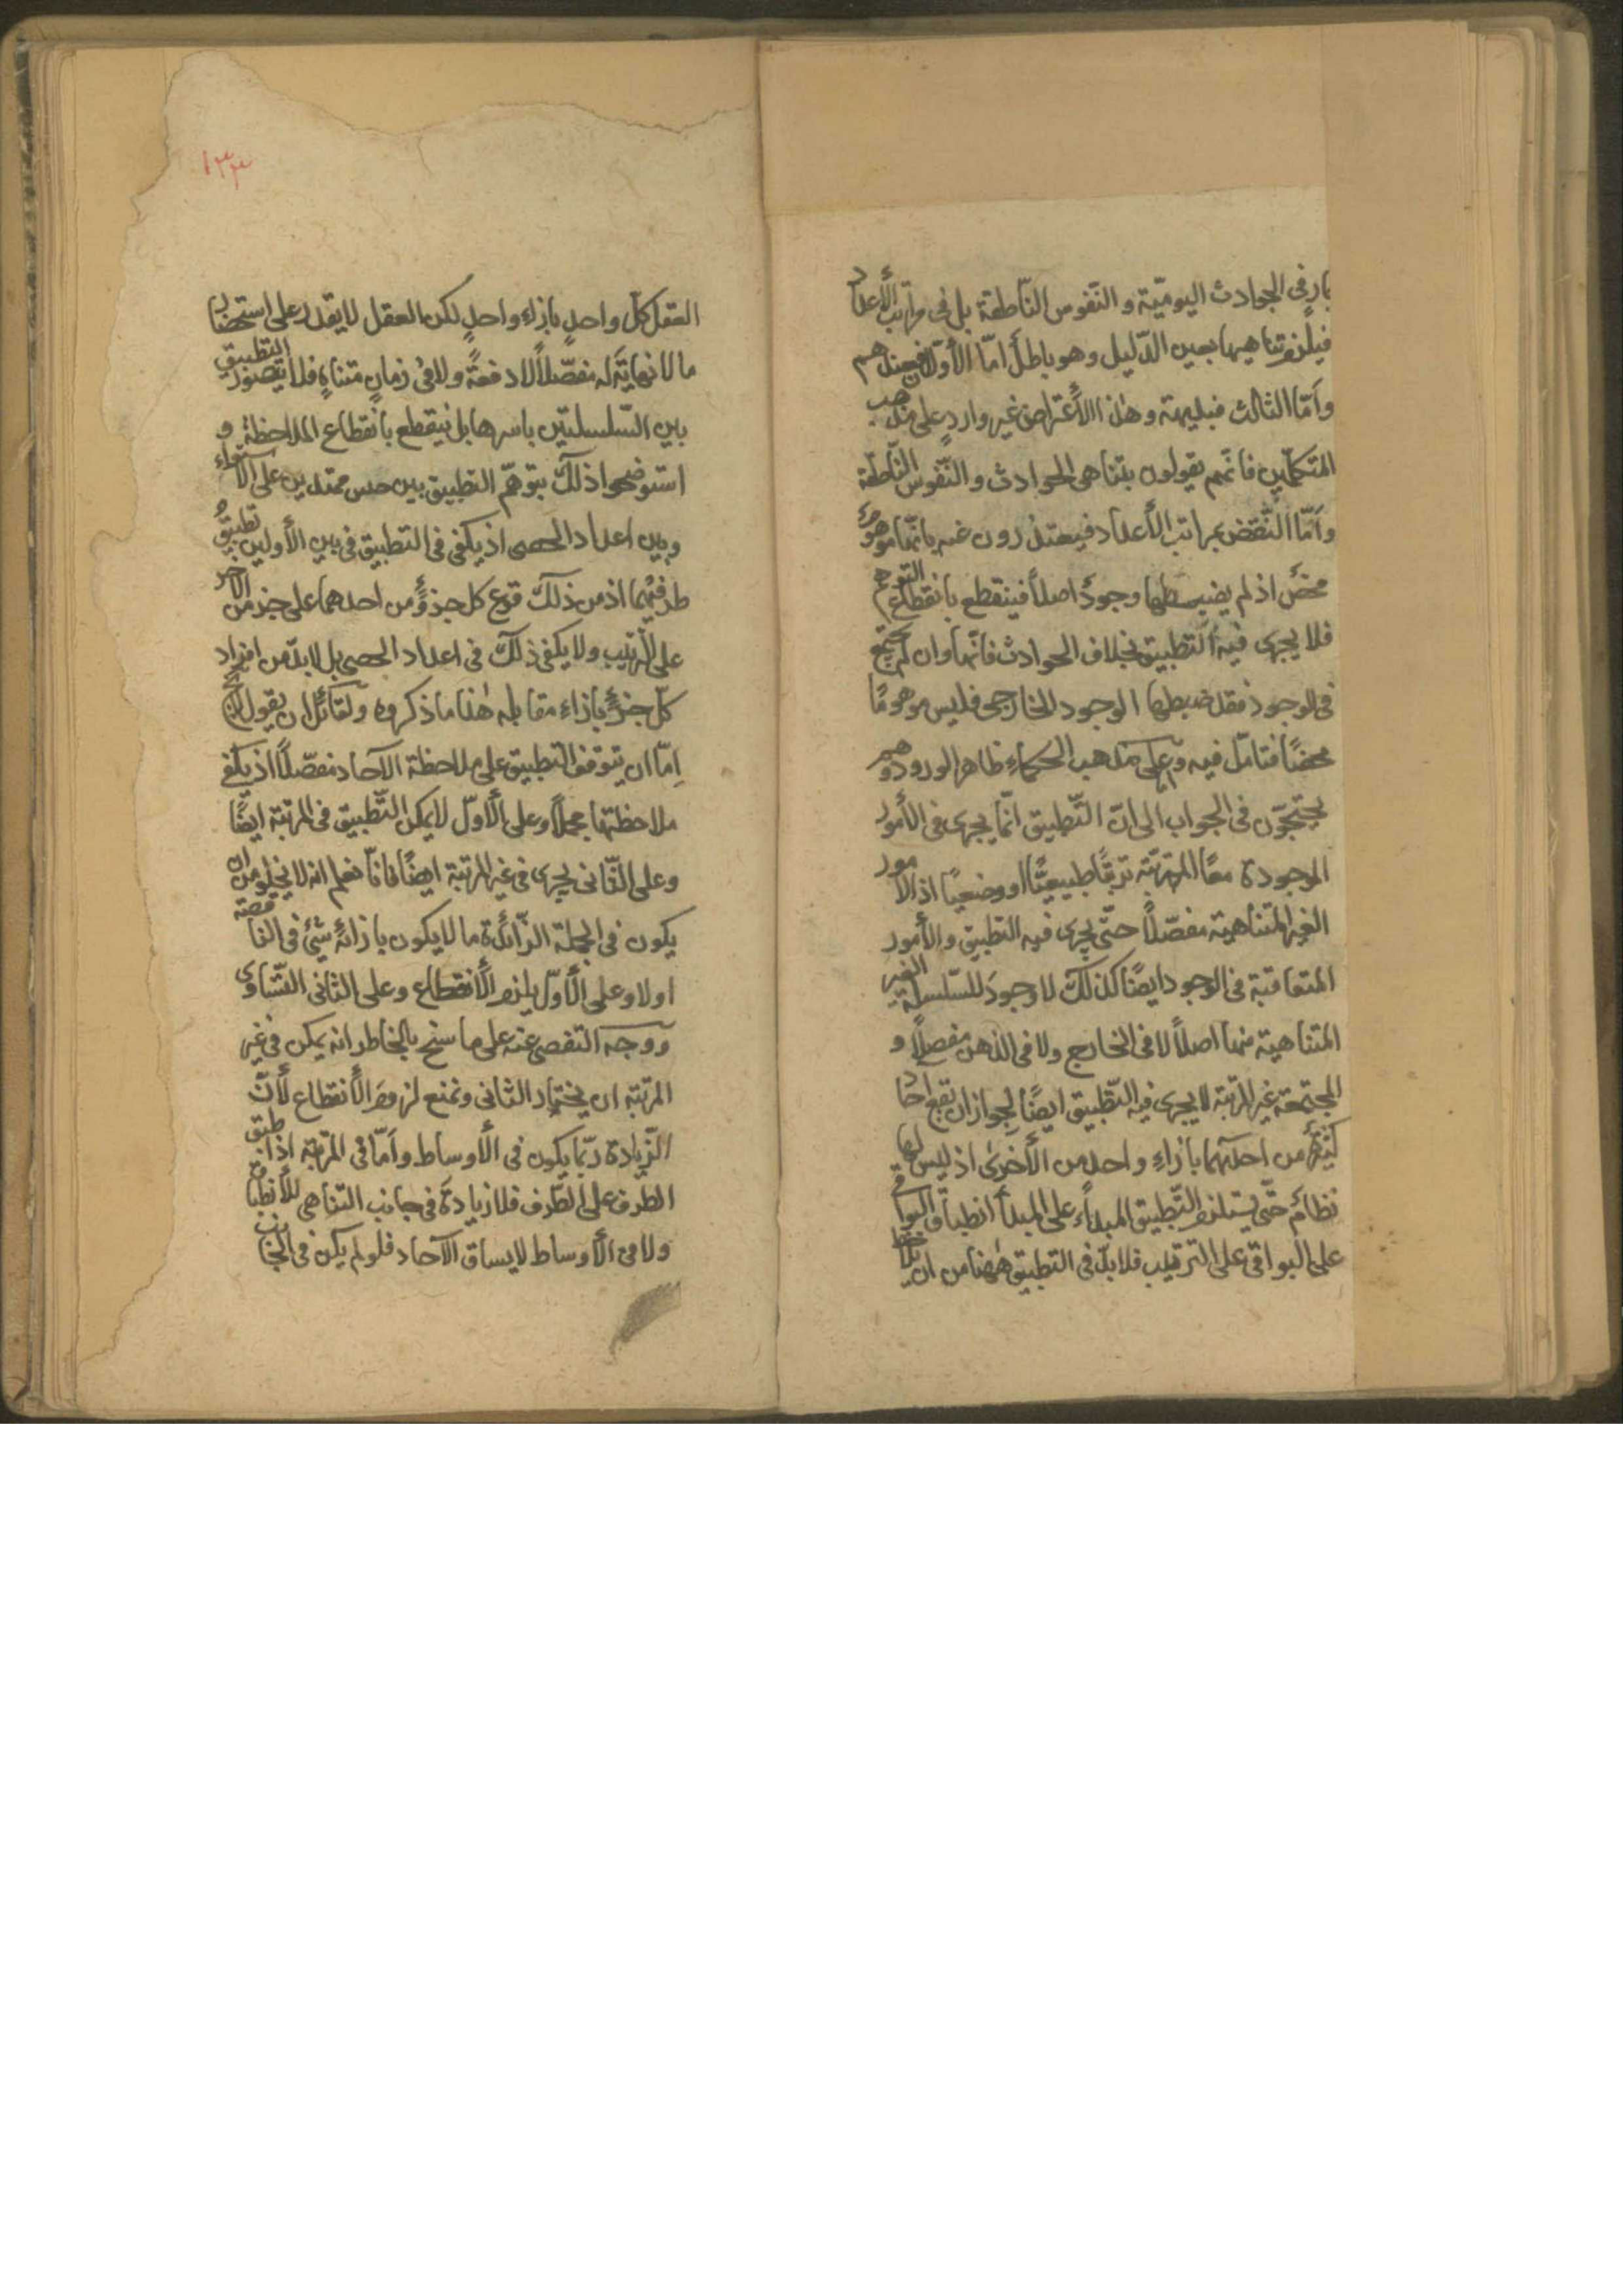 بار في الحوادث اليوميّة والنّفوس النّاطقة بل في مراتب الأعداد
فيلزم تناهيها بعين الدّليل وهو باطل امّا الأوّلان فعندهم
وامّا الثالث فبديهة وهذا الاعتراض غير وارد على مذهب
المتكلّمين فانّهم يقولون بتناهى الحوادث والنّفوس النّاطقة
وامّا النّقض بمراتب الأعداد فيعتذرون عنه بانّها موهومة
محض اذ لم يضبطها وجودٌ اصلاً فينقطع بانقطاع التوهم
فلا يجرى فيه التطبيق بخلاف الحوادث فانّها وان لم يجتمع
في الوجود فقد ضبطها الوجود الخارجى فليس موهومًا
محضًا فتامّل فيه وعلى مذهب الحكماء ظاهر الورود وهم
يحتجّون في الجواب الى انّ التّطبيق انّما يجرى في الأمور
الموجودة معًا المترتّبة ترتبًا طبيعيًّا او وضعيًا اذ الامور
الغير المتناهية مفصّلاً حتّى يجرى فيه التطبيق والأمور
المتعاقبة في الوجود ايضًا كذلك لا وجود للسّلسلة الغير
المتناهية منها اصلاً لا في الخارج ولا في الذهن مفصلاً و
المجتمعة غير المرتبة لا يجرى فيه التّطبيق ايضًا لجواز ان تقع احاد
كثيرة من احدهما بازاء واحد من الأخرى اذ ليس لها
نظام حتّى يستلزم التّطبيق المبداء على المبدأ انطباق البواقى
على البواقى على الترتيب فلا بدّ في التطبيق ههنا من ان يلاحظ
١٣٣
العقل كلّ واحدٍ بازاء واحدٍ لكن العقل لا يقدر على استحضار
ما لا نهاية له مفصّلاً لا دفعةً ولا في زمانٍ متناهٍ فلا يتصوّر التطبيق
بين السّلسلتين باسرها بل ينقطع بانقطاع الملاحظة و
استوضحوا ذلك بتوهّم التطبيق بين ممتدين على الاستواء
وبين اعداد الحصى اذ يكفى في التطبيق في بين الأولين تطبيق
طرفيهما اذ من ذلك كل جزؤ من احدهما على جزء من الاخر
على الترتيب ولا يكفى ذلك في اعداد الحصى بل لا بدّ من
كلّ جزؤ بازاء مقابله هذا ما ذكروه ولقائل ان يقول
امّا ان يتوقف التطبيق على ملاحظة الآحاد مفصّلاً اذ يكفى
ملاحظتها مجملا وعلى الأوّل لا يمكن التّطبيق في المرتبة ايضًا
وعلى الثّانى يجرى في غير المرتبة ايضًا فانّا نعلم انه لا يخلو من ان
يكون في الجملة الزّائدة ما لا يكون بازائه شئ في الناقصة
اولا وعلى الأوّل يلزم الأنقطاع وعلى الثانى التّساوى
ووجه التفصى عنه على ما سنح بالخاطر انه يمكن في غير
المرتبة ان يختار الثانى ونمنع لزوم الأنقطاع لأنّ
الزّيادة ربّما يكون في الأوساط وامّا في المرتبة اذا طبق
الطرف على الطّرف فلا زيادة في جانب التناهى للأنطباق
ولا في الأوساط لا يساق الآحاد فلو لم يكن في الجانب